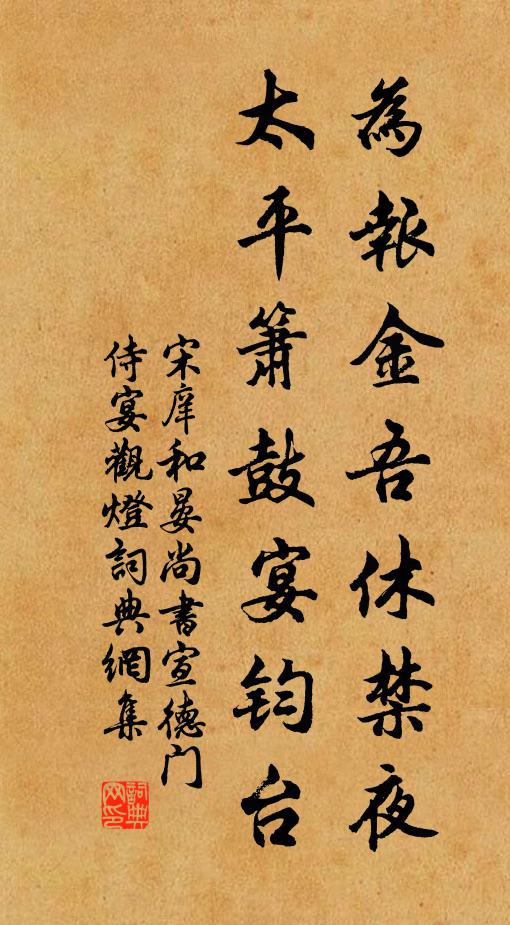 為報金吾休禁夜
太平簫鼓宴钧台
宋庠和晏尚書宣德门
侍宴觀燈詞典網集
詞典网印